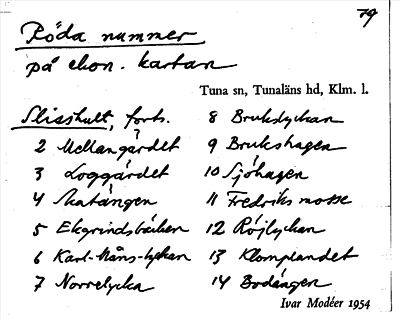 79
Röda nummer
på ekon. kartan
Tuna sn, Tunaläns hd, Klm. l.
Slisshult, forts.
2 Mellangärdet
3 Loggärdet
4 Skatängen
5 Ekgrindsbacken
6 Karl-Måns-lyckan
7 Norrelycka
8 Brukslyckan
9 Brukshagen
10 Sjöhagen
11 Fredriks mosse
12 Röjlyckan
13 Klomplandet
14 Bodängen
Ivar Modéer 1954